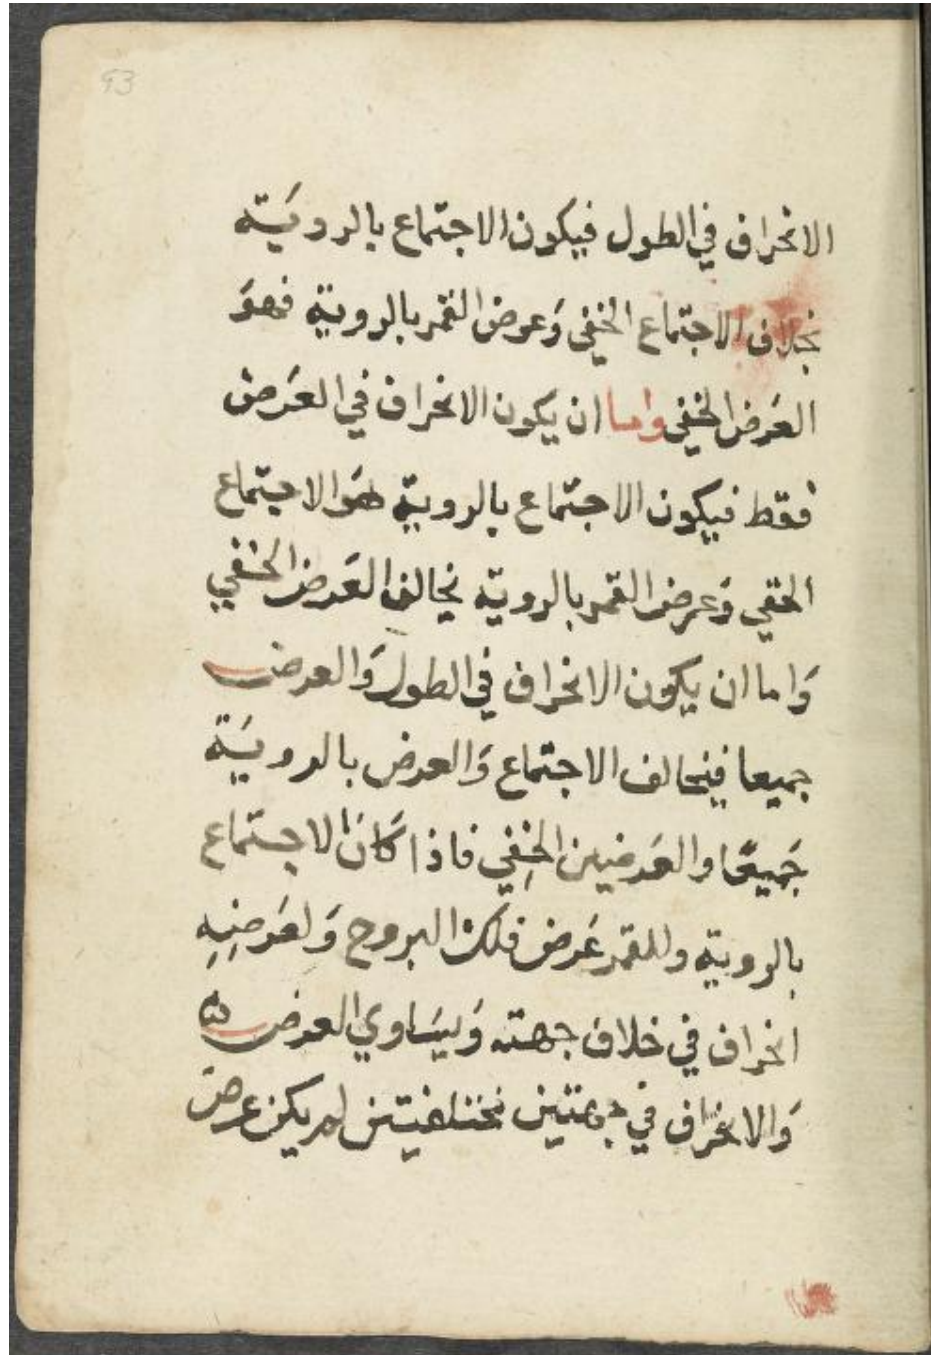 93
الانحراف في الطول فيكون الاجتماع بالرويَته
بخلاف الاجتماع الخفي وَعرض القمر بالروية فهوَ
العَرض الخفي واما ان يكون الانحراف في العَرض
فقط فيكون الاجتماع بالروية هوَ الاجتماع
الخفي وَعرض القمر بالروية يخالف العَرض الخفي
وَاما ان يكون الانحراف في الطول وَالعرض
جميعا فيخالف الاجتماع وَالعرض بالرويَة
جَميعًا والعَرضين الخِفي فاذا كَانَ الاجتماع
بالروية وللقمر عَرض فلك البروج وَلعَرضِنِهِ
انحراف في خلاف جهته وَيسَاوي العرض
وَالانحراف في جهتين مختلفيتين لم يكن عرض